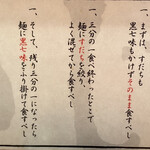 一、まずは、すだちも
黒七味もかけずそのまま食すべし
一、三分の一食べ終わったところで
麺にすだちを絞り、
よく混ぜてから食すべし
一、そして、残り三分の一になったら
麺に黒七味をふり掛けて食すべし